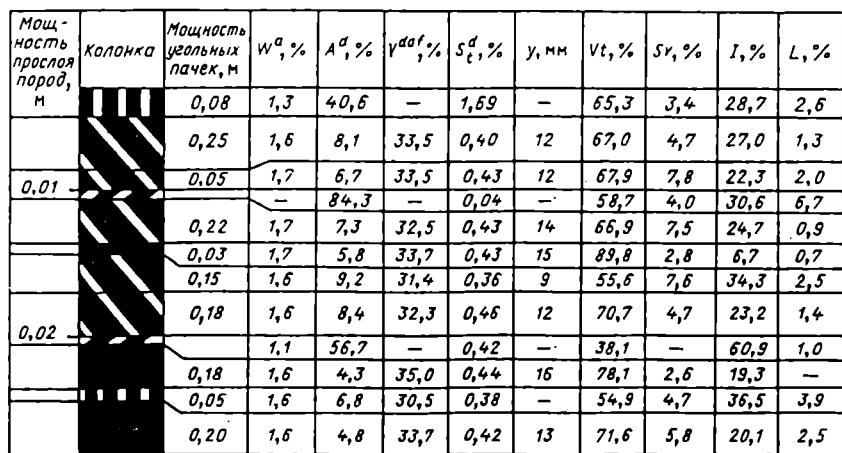 Мощность прослоя пород, м | Колонка | Мощность угольных пачек, м | Wᵃ, % | Aᵈ, % | Vᵈᵃᶠ, % | Sₜᵈ, % | y, мм | Vt, % | Sv, % | I, % | L, %
0,08 1,3 40,6 — 1,69 — 65,3 3,4 28,7 2,6
0,25 1,6 8,1 33,5 0,40 12 67,0 4,7 27,0 1,3
0,05 1,7 6,7 33,5 0,43 12 67,9 7,8 22,3 2,0
0,01 — 84,3 — 0,04 — 58,7 4,0 30,6 6,7
0,22 1,7 7,3 32,5 0,43 14 66,9 7,5 24,7 0,9
0,03 1,7 5,8 33,7 0,43 15 89,8 2,8 6,7 0,7
0,15 1,6 9,2 31,4 0,36 9 55,6 7,6 34,3 2,5
0,18 1,6 8,4 32,3 0,46 12 70,7 4,7 23,2 1,4
0,02 1,1 56,7 — 0,42 — 38,1 — 60,9 1,0
0,18 1,6 4,3 35,0 0,44 16 78,1 2,6 19,3 —
0,05 1,6 6,8 30,5 0,38 — 54,9 4,7 36,5 3,9
0,20 1,6 4,8 33,7 0,42 13 71,6 5,8 20,1 2,5